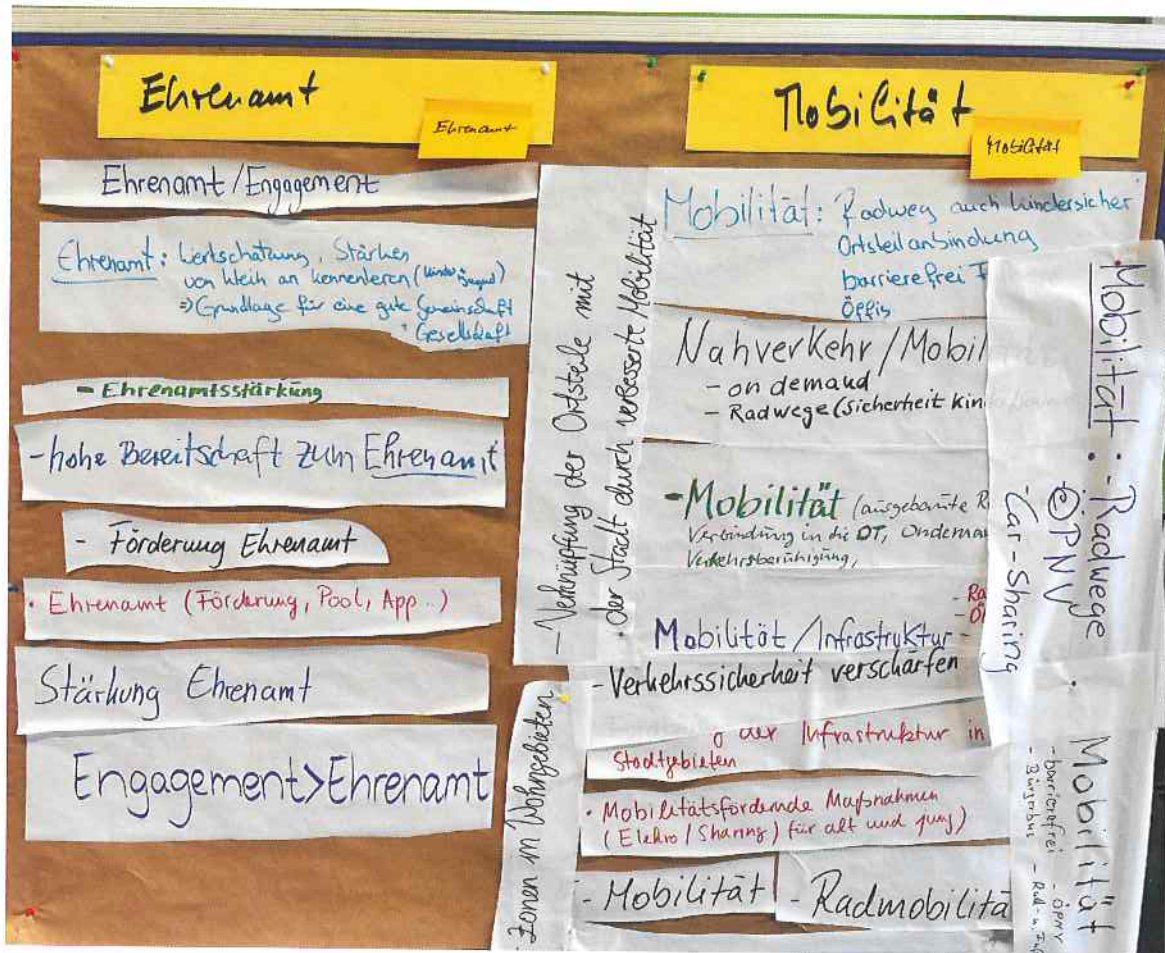 Ehrenamt
Ehrenamt
Ehrenamt/Engagement
Ehrenamt: Wertschätzung, Stärken
von klein an kennenleren (Kinder Jugend)
=> Grundlage für eine gute Gemeinschaft
Gesellschaft
- Ehrenamtsstärkung
- hohe Bereitschaft zum Ehrenamt
- Förderung Ehrenamt
• Ehrenamt (Förderung, Pool, App..)
Stärkung Ehrenamt
Engagement>Ehrenamt
Mobilität
Mobilität
- Verknüpfung der Ortsteile mit
der Stadt durch verbesserte Mobilität
Mobilität: Radweg auch kindersicher
Ortsteilanbindung
barrierefrei
Öffis
Nahverkehr/Mobil
- on demand
- Radwege (Sicherheit Kin
- Mobilität (ausgebaute R
Verbindung in die OT, Ondema
Verkehrsberuhigung,
Mobilität/Infrastruktur
- Verkehrssicherheit verschärfen
der Infrastruktur in
Stadtgebieten
• Mobilitätsfördernde Maßnahmen
(Elektro/Sharing) für alt und jung)
- Mobilität
- Radmobilitä
Zonen in Wohngebieten
Mobilität: - Radwege
ÖPNV
- Car-Sharing
Mobilität
- barrierefrei - ÖPNV
- Bürgerbus - Rad- u.